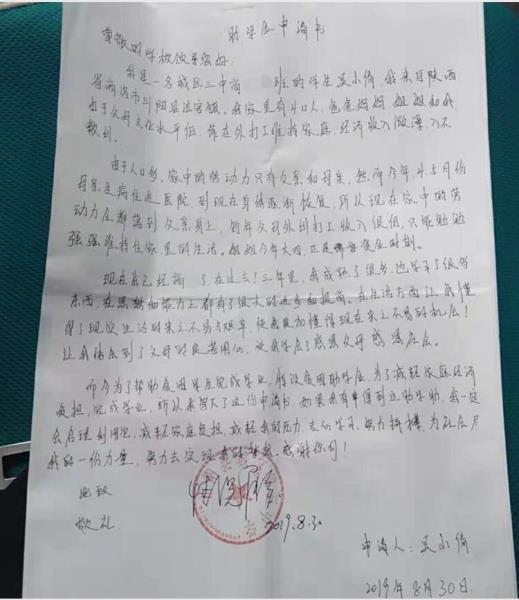 助学金申请书
尊敬的学校领导您好:
我是一名城区三中高 班的学生吴小倩,我来自陕西
省商洛市山阳县法官镇,我家里有4口人,爸爸妈妈姐姐和我
由于父母文化水平低,靠在外打工维持家庭,经济收入微薄,入不
敷出。
由于人口多,家中的劳动力只有父亲和母亲,然而今年4.5月份
母亲生病住进医院到现在身体逐渐恢复,所以现在家中的劳
动力全都落到父亲身上,每年父母外出打工收入很低,只能勉勉
强强维持住家里的生活。姐姐今年大四,正是需要资金时刻。
现在我已经高 了在过去了三年里,我成熟了很多,也学习了很多
东西,在思想和能力上都有了很大的进步和提高,在生活方面让我懂
得了现实生活的来之不易与艰辛,使我更加懂得现在来之不易的机会!
让我体会到了父母的良苦用心,使我学会了感恩父母,感恩社会。
而今为了帮助贫困学生完成学业,能设贫困助学金,为了减轻家庭经济
负担,完成学业,所以我写了这份申请书,如果我有幸得到这助学助,我一定
会合理利用它,减轻家庭负担,减轻我的压力,去心学习,努力拼搏,为社会尽
我的一份力量,努力去实现我的梦想,感谢你们!
此致
敬礼
2019.8.30
申请人:吴小倩
2019年8月30日